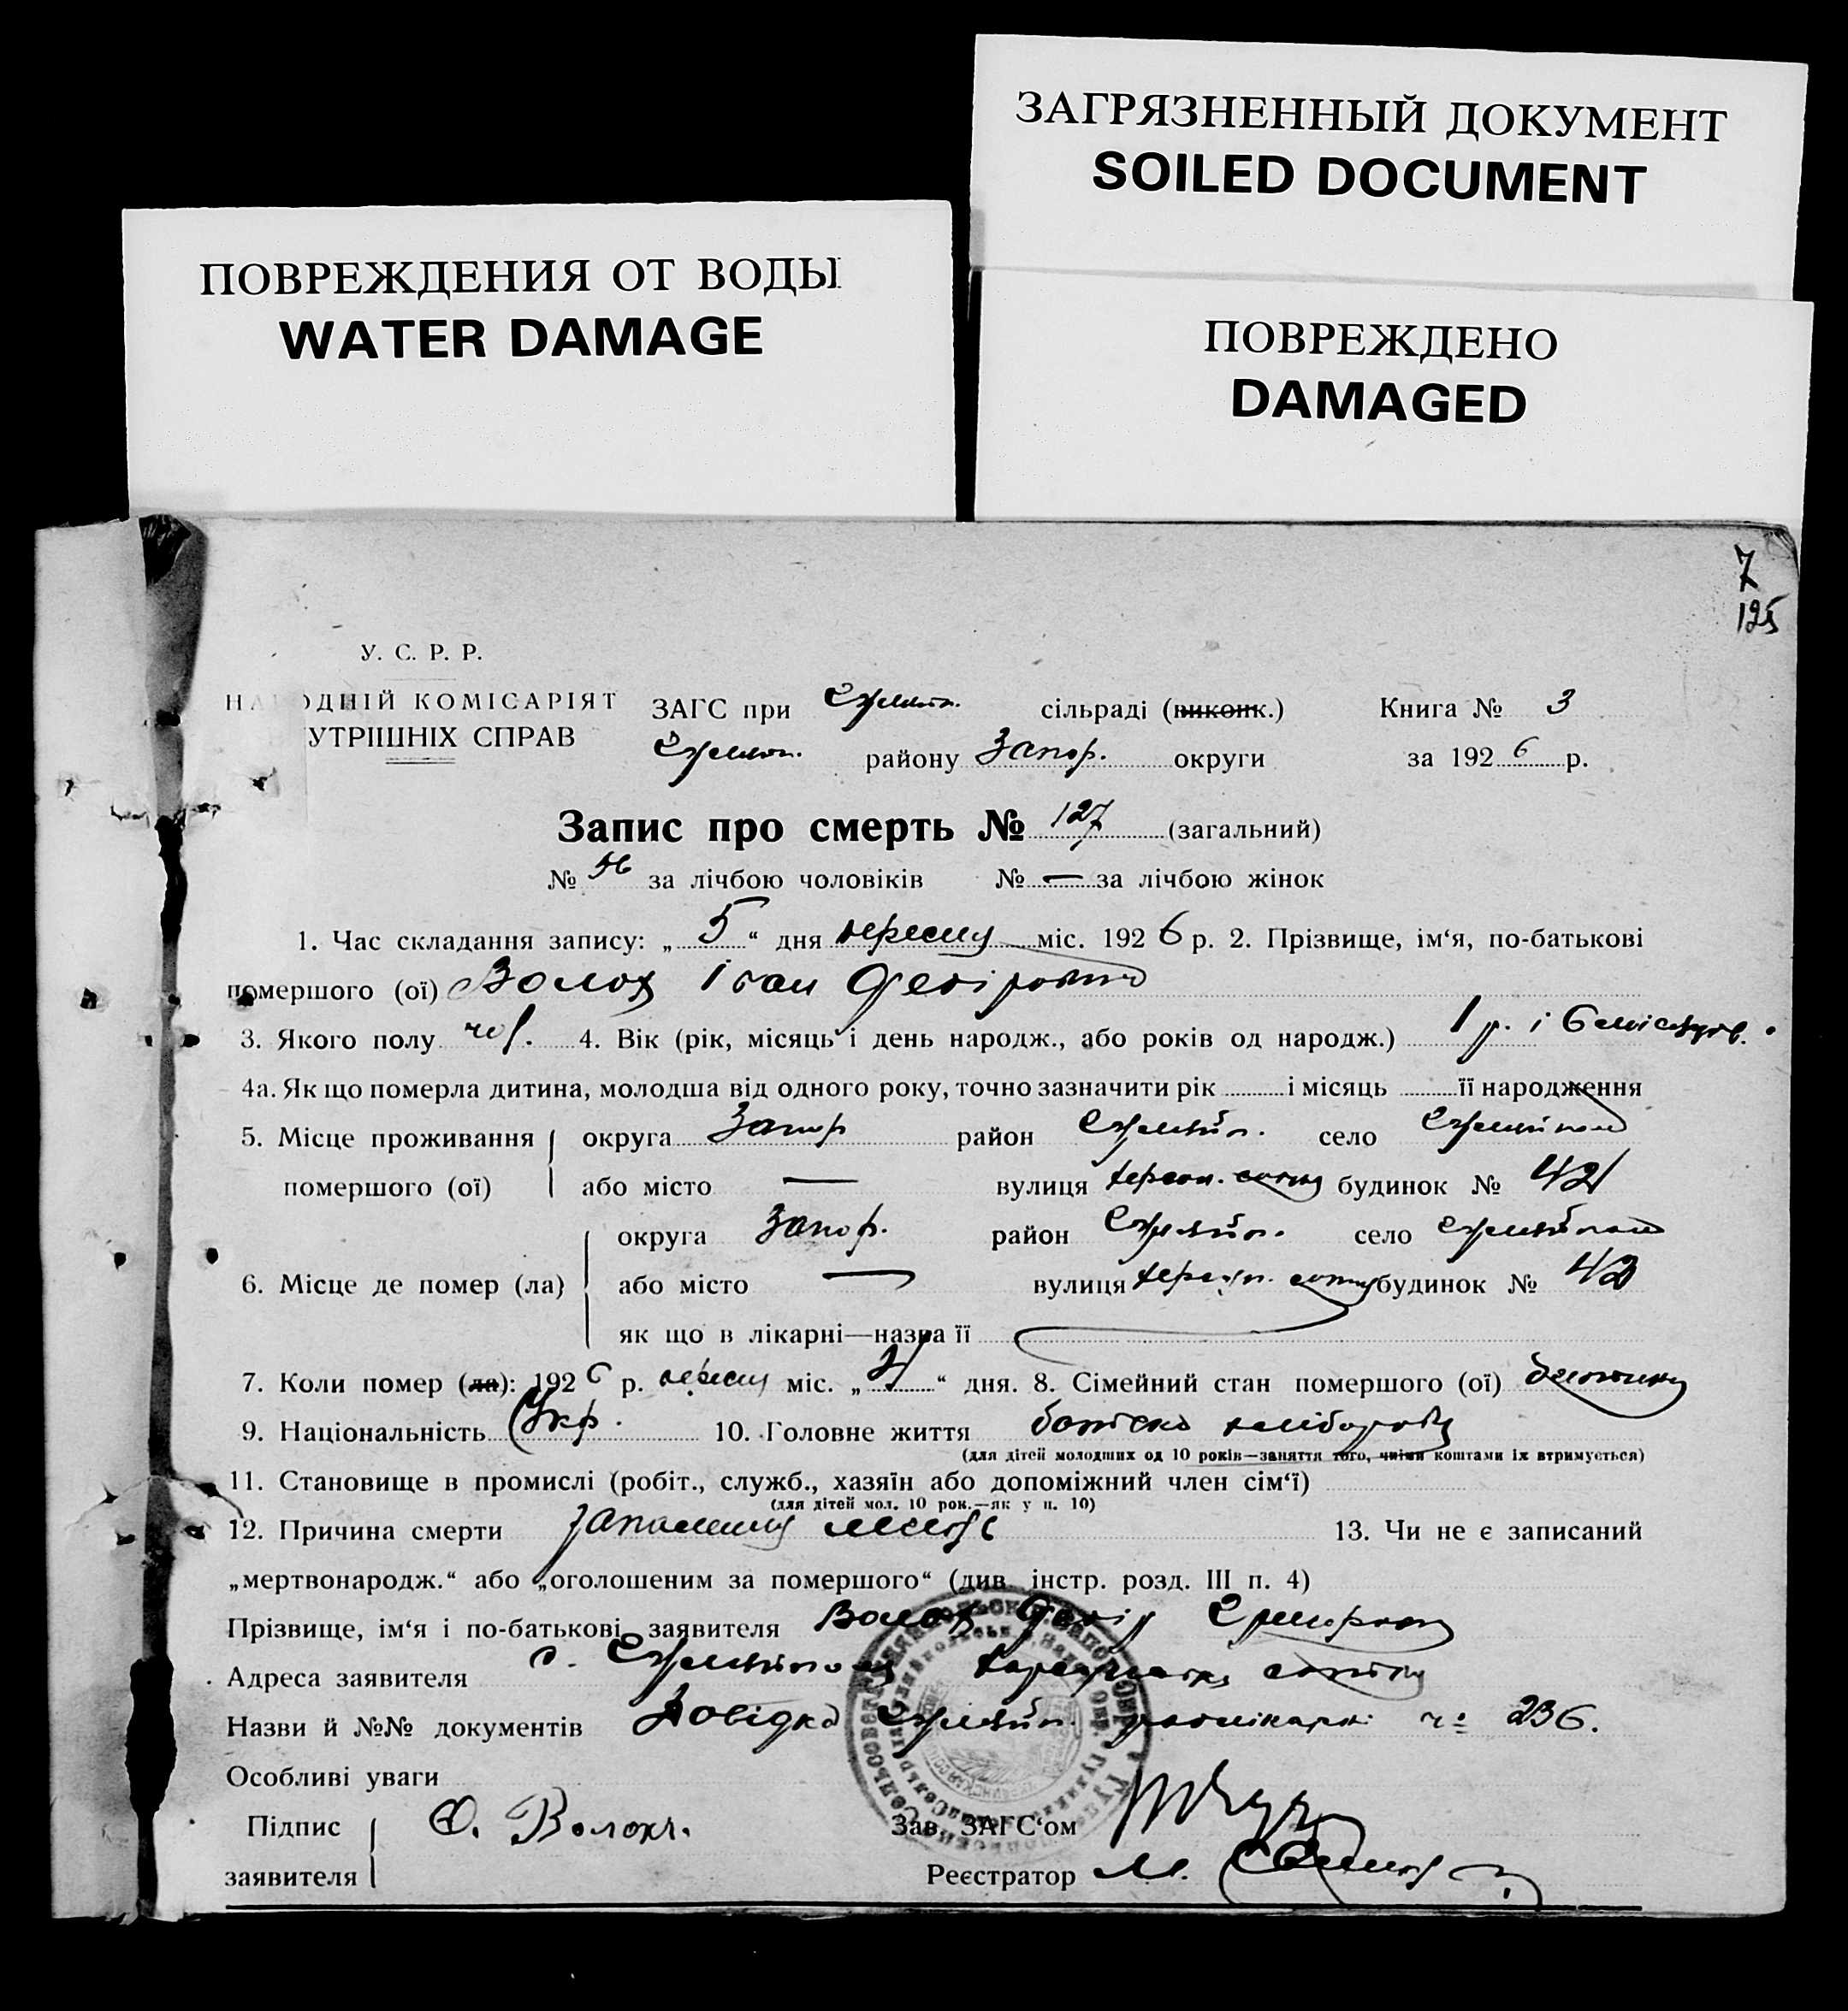 ЗАГРЯЗНЕННЫЙ ДОКУМЕНТ
SOILED DOCUMENT
ПОВРЕЖДЕНИЯ ОТ ВОДЫ
WATER DAMAGE
ПОВРЕЖДЕНО
DAMAGED
7
125
У. С. Р. Р.
ЗАГС при сільраді (виконк.) Книга № 3
КОМІСАРІЯТ
УТРІШНІХ СПРАВ
району Запор. округи за 1926 р.
Запис про смерть № 127 (загальний)
№ 56 за лічбою чоловіків № — за лічбою жінок
1. Час складання запису: „5“ дня вересня міс. 1926 р. 2. Прізвище, ім‘я, по-батькові
помершого (ої) Волох Іван
3. Якого полу чол. 4. Вік (рік, місяць і день народж., або років од народж.) 1 р. і 6 місяців.
4а. Як що померла дитина, молодша від одного року, точно зазначити рік і місяць її народження
5. Місце проживання округа Запор район село
помершого (ої) або місто — вулиця будинок № 42
округа Запор. район село
6. Місце де помер (ла) або місто — вулиця будинок № 42
як що в лікарні—назва її
7. Коли помер (ла): 1926 р. вересня міс. „ “ дня. 8. Сімейний стан помершого (ої) дитина
9. Національність Укр. 10. Головне життя батько хлібороб
(для дітей молодших од 10 років—заняття того, чиїми коштами їх втримується)
11. Становище в промислі (робіт., служб., хазяїн або допоміжний член сім‘ї)
(для дітей мол. 10 рок.—як у п. 10)
12. Причина смерти запалення легенів 13. Чи не є записаний
„мертвонародж.“ або „оголошеним за помершого“ (див. інстр. розд. III п. 4)
Прізвище, ім‘я і по-батькові заявителя Волох
Адреса заявителя с.
Назви й №№ документів Довідка ч. 236.
Особливі уваги
Підпис Волох. Зав. ЗАГС‘ом
заявителя Реєстратор М.